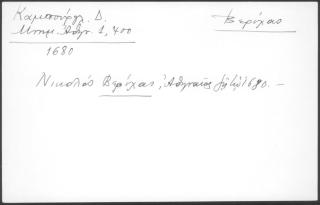 Καμπούργλ. Δ.
Μνημ. Ἀθην. 1, 400
1680
Βερόχας
Νικολός Βερόχας, Ἀθηναῖος 1680. —